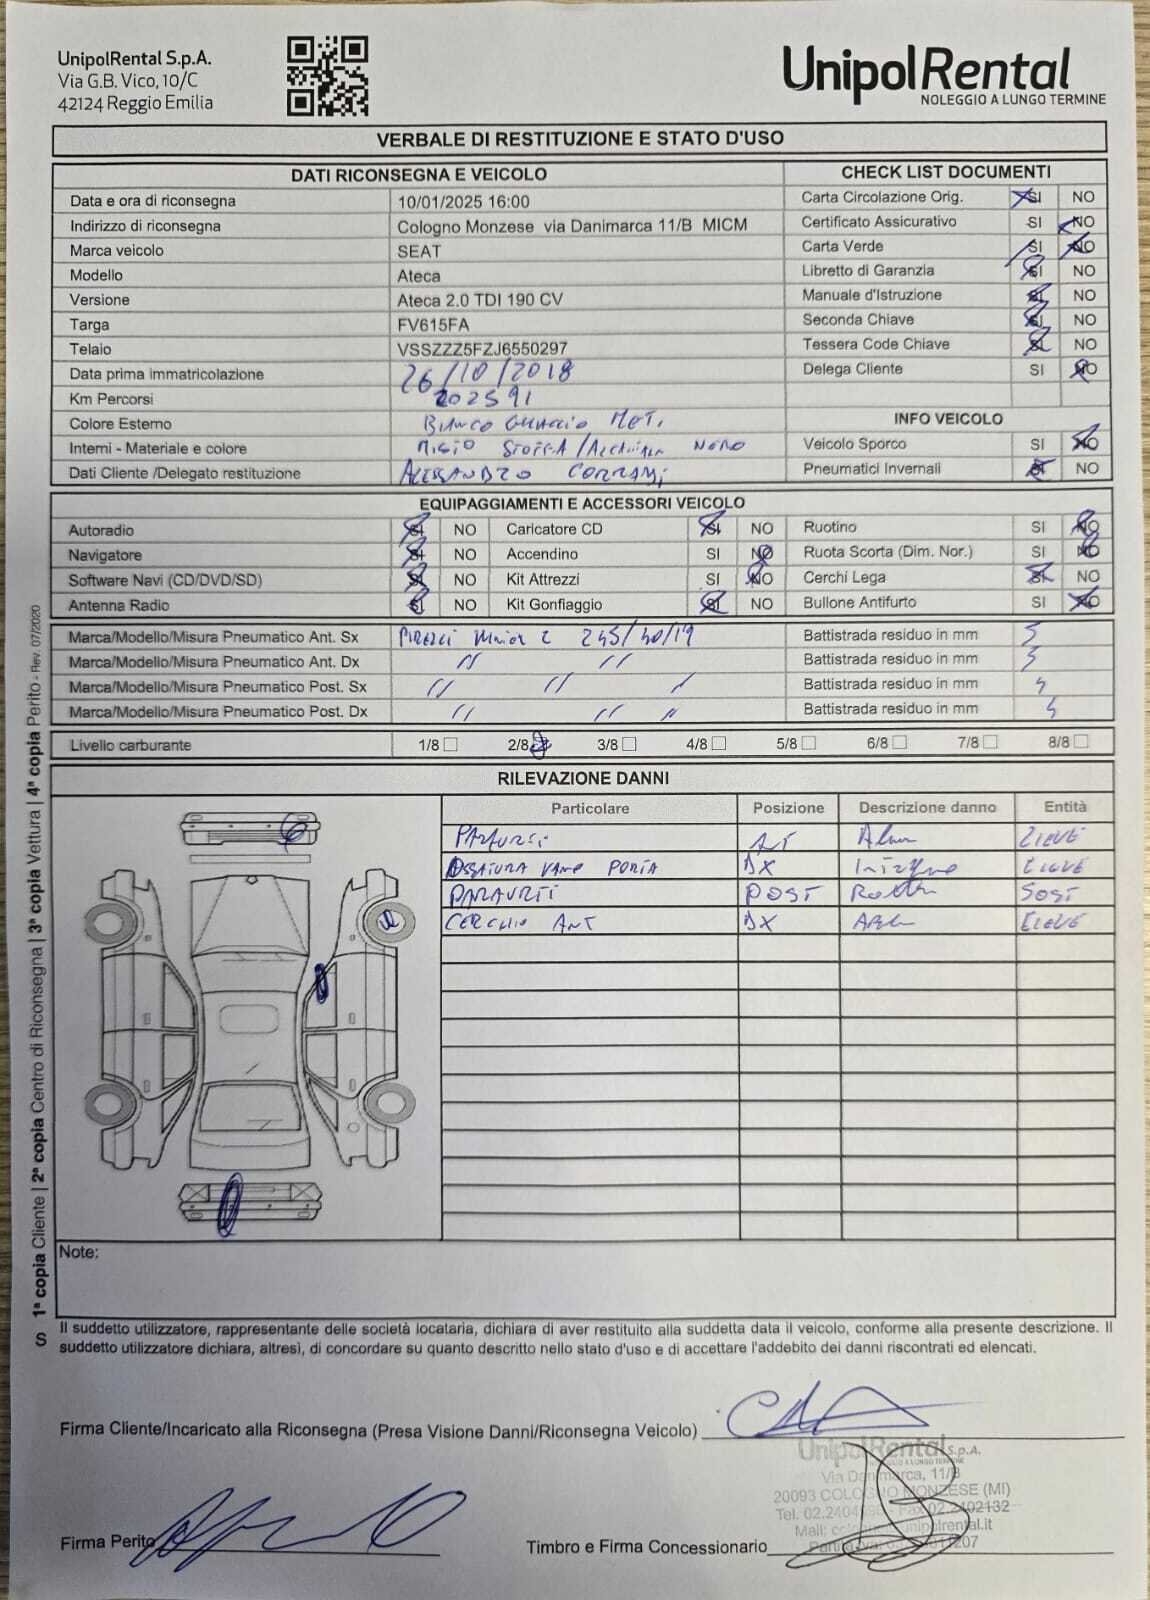 UnipolRental S.p.A.
Via G.B. Vico, 10/C
42124 Reggio Emilia
UnipolRental
NOLEGGIO A LUNGO TERMINE
VERBALE DI RESTITUZIONE E STATO D'USO
DATI RICONSEGNA E VEICOLO
Data e ora di riconsegna 10/01/2025 16:00
Indirizzo di riconsegna Cologno Monzese via Danimarca 11/B MICM
Marca veicolo SEAT
Modello Ateca
Versione Ateca 2.0 TDI 190 CV
Targa FV615FA
Telaio VSSZZZ5FZJ6550297
Data prima immatricolazione 26/10/2018
Km Percorsi 202591
Colore Esterno BIANCO MET.
Interni - Materiale e colore MISTO STOFFA / NERO
Dati Cliente /Delegato restituzione ALESSANDRO
CHECK LIST DOCUMENTI
Carta Circolazione Orig. SI NO
Certificato Assicurativo SI NO
Carta Verde SI NO
Libretto di Garanzia SI NO
Manuale d'Istruzione SI NO
Seconda Chiave SI NO
Tessera Code Chiave SI NO
Delega Cliente SI NO
INFO VEICOLO
Veicolo Sporco SI NO
Pneumatici Invernali SI NO
EQUIPAGGIAMENTI E ACCESSORI VEICOLO
Autoradio SI NO Caricatore CD SI NO Ruotino SI NO
Navigatore SI NO Accendino SI NO Ruota Scorta (Dim. Nor.) SI NO
Software Navi (CD/DVD/SD) SI NO Kit Attrezzi SI NO Cerchi Lega SI NO
Antenna Radio SI NO Kit Gonfiaggio SI NO Bullone Antifurto SI NO
Marca/Modello/Misura Pneumatico Ant. Sx PIRELLI 245/40/19 Battistrada residuo in mm 5
Marca/Modello/Misura Pneumatico Ant. Dx // // Battistrada residuo in mm 5
Marca/Modello/Misura Pneumatico Post. Sx // // // Battistrada residuo in mm
Marca/Modello/Misura Pneumatico Post. Dx // // // Battistrada residuo in mm
Livello carburante 1/8 2/8 3/8 4/8 5/8 6/8 7/8 8/8
RILEVAZIONE DANNI
Particolare Posizione Descrizione danno Entità
PARAURTI ANT LIEVE
OSSATURA VANO PORTA DX LIEVE
PARAURTI POST SOST
CERCHIO ANT DX LIEVE
Note:
Il suddetto utilizzatore, rappresentante delle società locataria, dichiara di aver restituito alla suddetta data il veicolo, conforme alla presente descrizione. Il
suddetto utilizzatore dichiara, altresì, di concordare su quanto descritto nello stato d'uso e di accettare l'addebito dei danni riscontrati ed elencati.
Firma Cliente/Incaricato alla Riconsegna (Presa Visione Danni/Riconsegna Veicolo)
UnipolRental S.p.A.
Via Danimarca, 11/B
20093 COLOGNO MONZESE (MI)
Firma Perito
Timbro e Firma Concessionario
S 1ª copia Cliente | 2ª copia Centro di Riconsegna | 3ª copia Vettura | 4ª copia Perito - Rev. 07/2020